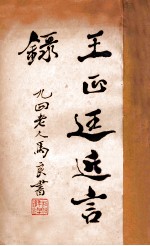 王正廷近言
錄
九四老人馬良書